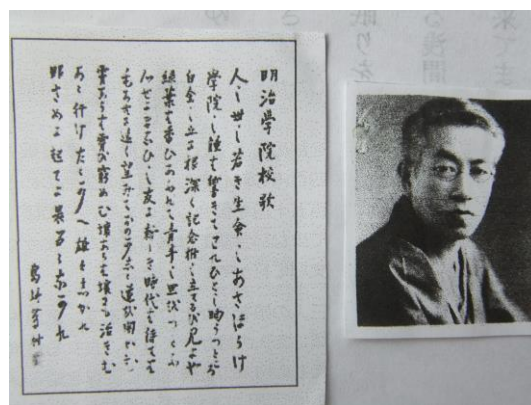 明治學院校歌
人の世の若き生命のあさぼらけ
學院の鐘は響きてわれひとの胸うつところ
白金の丘に根深く記念樹の立てるを見よや
緑葉は香ひあふれて青年の思ひつたふ
心せよ學びの友よ新しき時代は待てり
もろともに遠く望みておのがじし道を開かむ
霄あらば霄を窮めむ壌あらば壌にも活きむ
あゝ行けたゝかへ雄々志かれ
眼さめよ起てよ畏るゝなかれ
島崎藤村